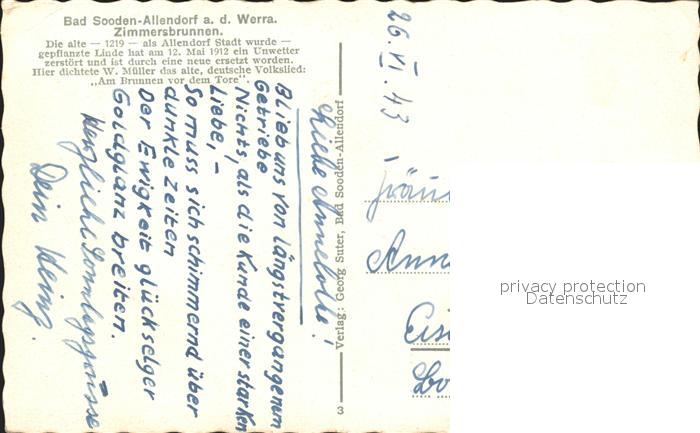 Bad Sooden-Allendorf a. d. Werra.
Zimmersbrunnen.
Die alte — 1219 — als Allendorf Stadt wurde —
gepflanzte Linde hat am 12. Mai 1912 ein Unwetter
zerstört und ist durch eine neue ersetzt worden.
Hier dichtete W. Müller das alte, deutsche Volkslied:
„Am Brunnen vor dem Tore“.
26. VI. 43
Liebe Annelotte!
Blieb uns von längstvergangenem
Getriebe
Nichts, als die Kunde einer starken
Liebe, –
So muss sich schimmernd über
dunkle Zeiten
Der Ewigkeit glückselger
Goldglanz breiten.
Herzliche Sonntagsgrüsse
Dein Heinz.
Verlag: Georg Suter, Bad Sooden-Allendorf
3
privacy protection
Datenschutz